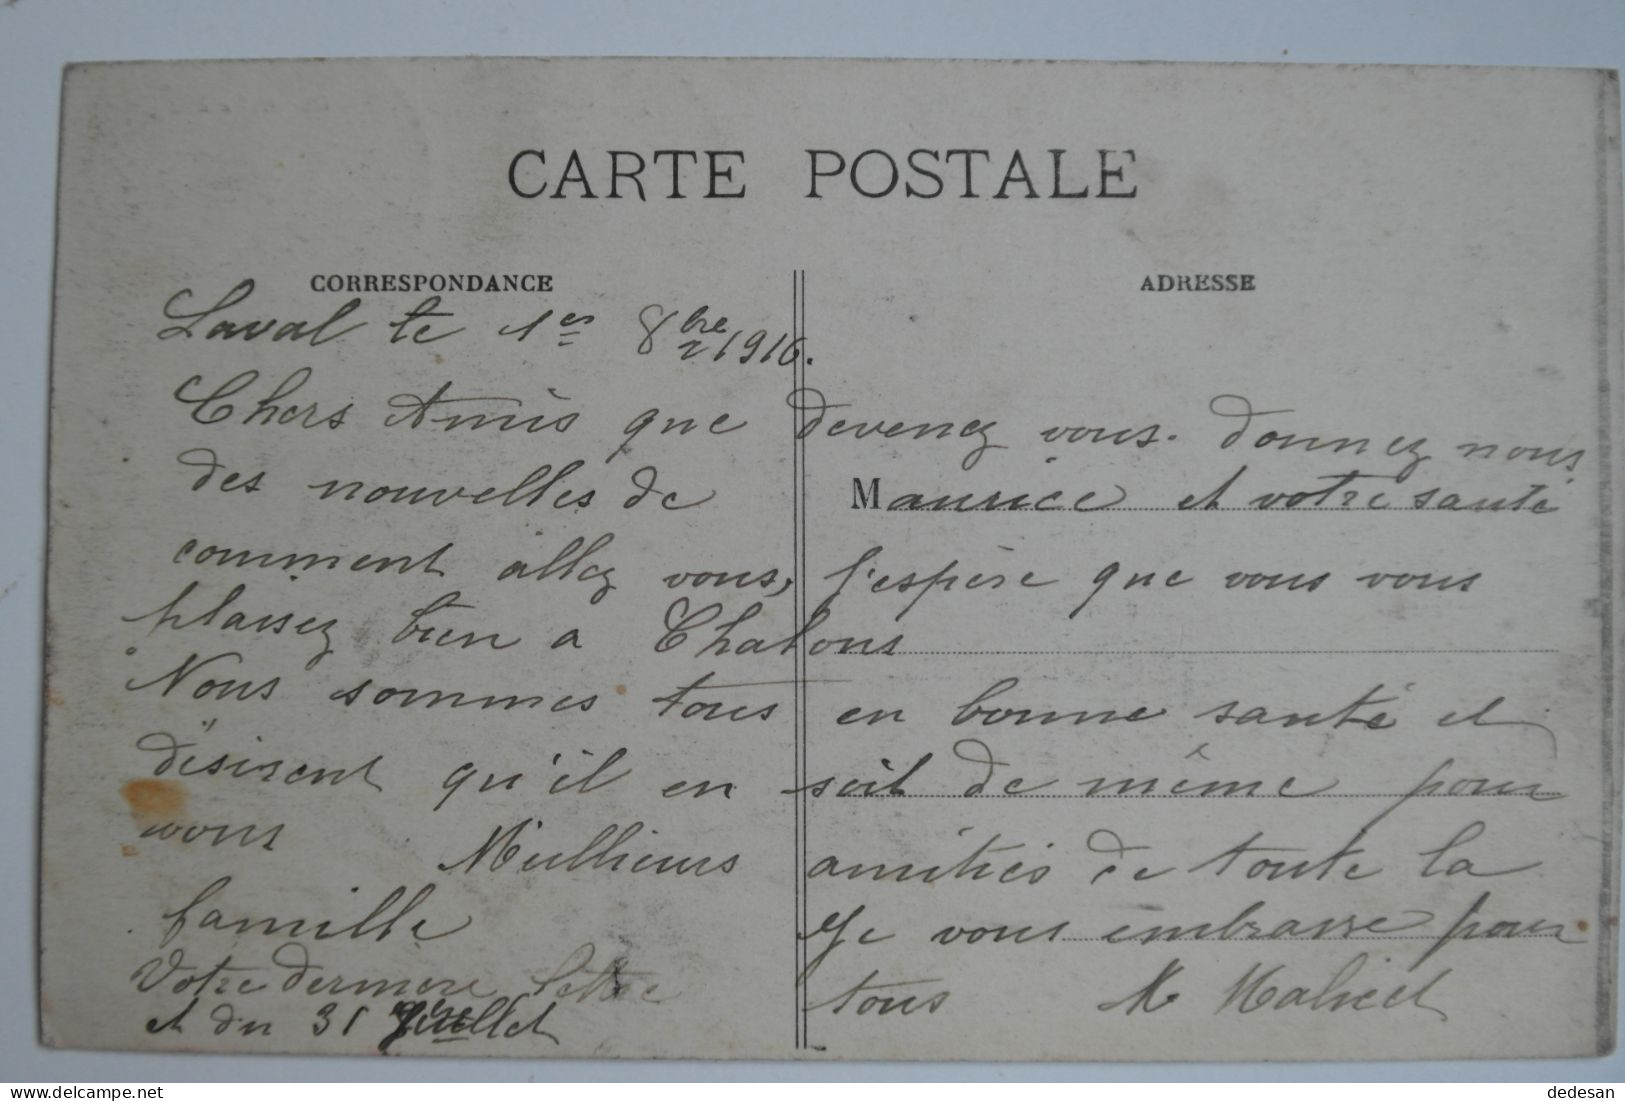 CARTE POSTALE
CORRESPONDANCE
ADRESSE
Laval le 1er 8bre 1916.
Chers Amis que devenez vous. Donnez nous
des nouvelles de Maurice et votre santé
comment allez vous, j'espère que vous vous
plaisez bien a Chalons
Nous sommes tous en bonne santé et
désirent qu'il en soit de même pour
vous Millieurs amitiés de toute la
famille Je vous embrasse pour
Votre derniere lettre tous
et du 31 Juillet
delcampe.net
dedesan